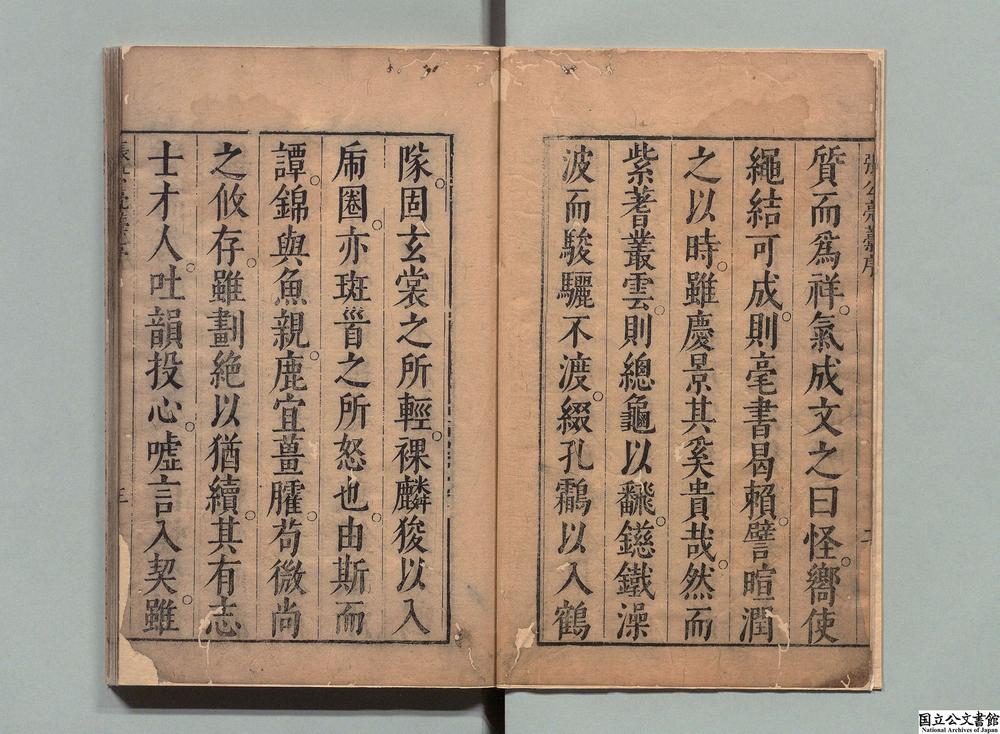 質而爲祥氣成文之曰怪嚮使
繩結可成則毫書曷賴譬暄潤
之以時雖慶景其奚貴哉然而
紫蓍叢雲則總龜以飜鎡鐵澡
波而駿驪不渡綴孔鸘以入鶴
隊固玄裳之所輕裸麟狻以入
虎圈亦斑首之所怒也由斯而
譚錦與魚親鹿宜薑臛苟微尚
之攸存雖劃絶以猶續其有志
士才人吐韻投心噓言入契雖
二
三
国立公文書館
National Archives of Japan